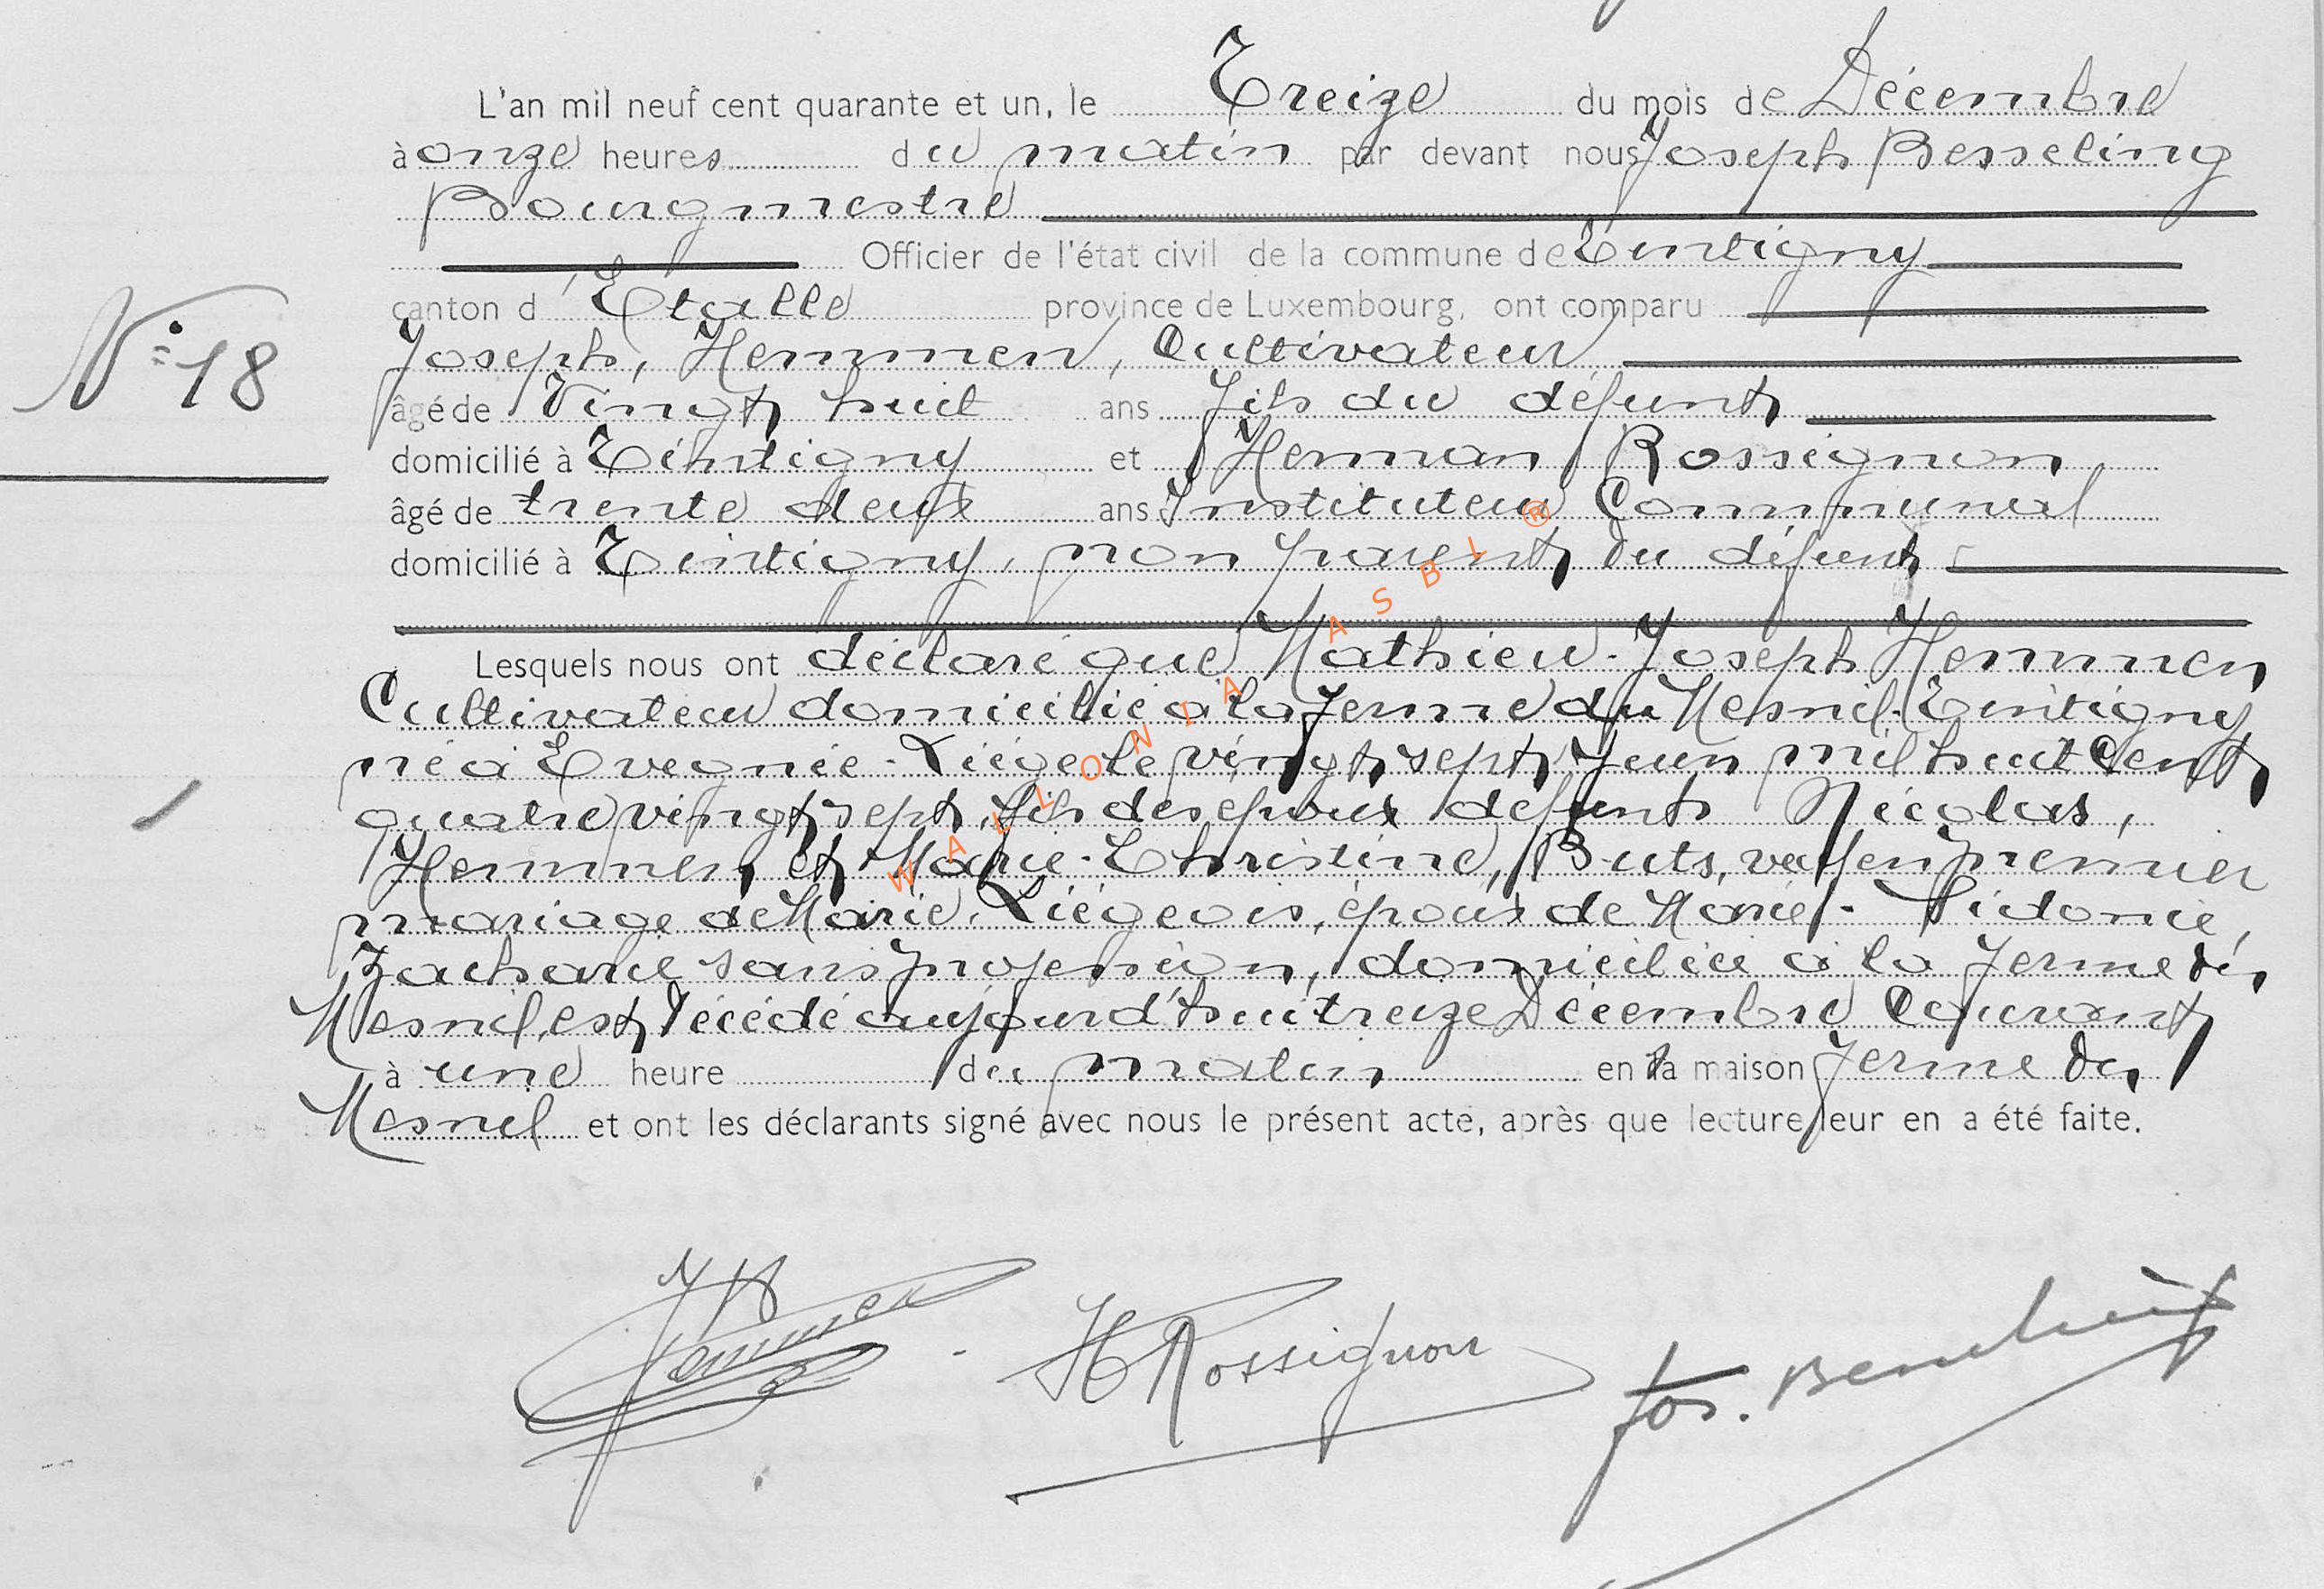 L'an mil neuf cent quarante et un, le Treize du mois de Décembre
à onze heures du matin par devant nous Joseph Besseling
Bourgmestre
Officier de l'état civil de la commune de Tintigny
canton d'Etalle province de Luxembourg, ont comparu
N° 18
Joseph, Hemmen, Cultivateur
âgé de Vingt huit ans fils du défunt
domicilié à Tintigny et Herman Rossignon
âgé de trente deux ans Instituteur Communal
domicilié à Tintigny, non parent du défunt
Lesquels nous ont déclaré que Mathieu-Joseph Hemmen
Cultivateur domicilié à la ferme du Mesnil-Tintigny
né à Evegnée-Liége le vingt sept Juin mil huit Cent
quatre vingt sept, fils des époux défunts Nicolas,
Hemmen, et Marie-Christine, Buts, veuf en premier
mariage de Marie, Liégeois, époux de Marie-Sidonie,
Zacharie sans profession, domiciliée à la ferme du
Mesnil, est décédé aujourd'hui treize Décembre Courant
à une heure du matin en la maison ferme du
Mesnil et ont les déclarants signé avec nous le présent acte, après que lecture leur en a été faite.
JHemmen HRossignon Jos. Besseling
WALLONIA ASBL ®